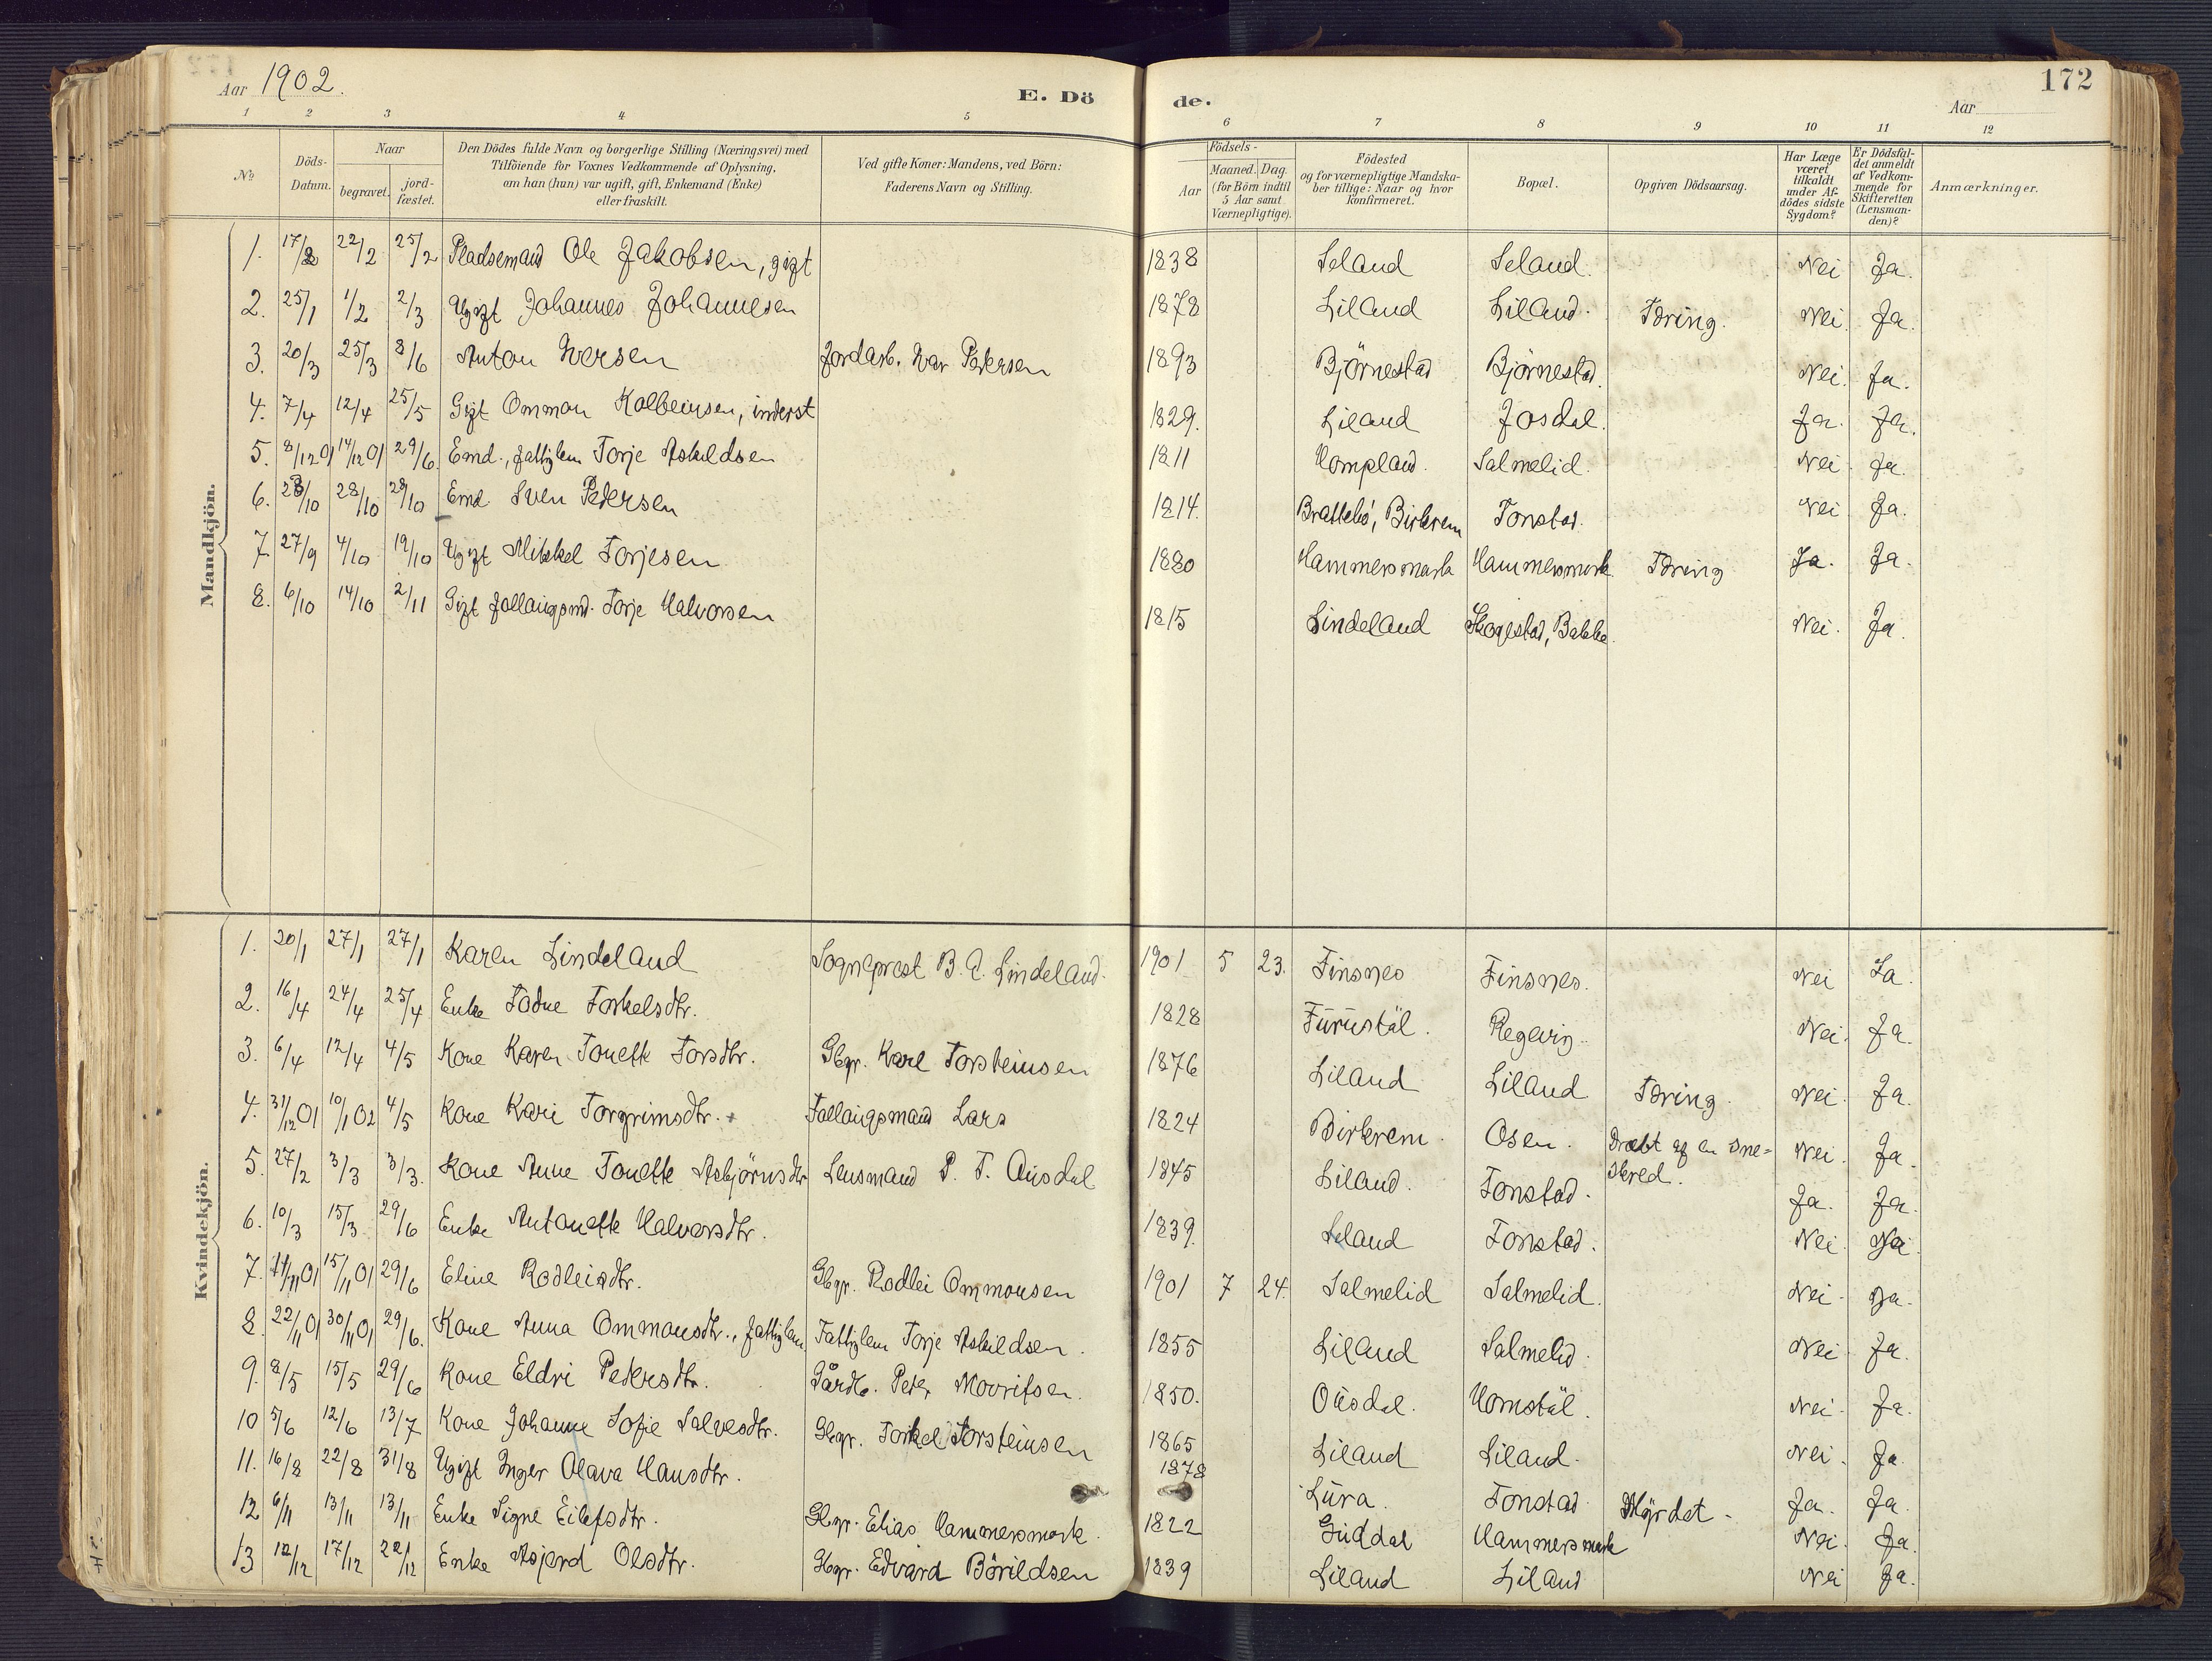 Aar 1902.
E. Dö
de.
172
Aar
1 2 3 4 5 6 7 8 9 10 11 12
No
Döds-Datum.
Naar
begravet.
jord-fæstet.
Den Dödes fulde Navn og borgerlige Stilling (Næringsvei) med
Tilföiende for Voxnes Vedkommende af Oplysning,
om han (hun) var ugift, gift, Enkemand (Enke)
eller fraskilt.
Ved gifte Koner: Mandens, ved Börn:
Faderens Navn og Stilling.
Födsels-
Aar
Maaned. Dag.
(for Börn indtil
5 Aar samt
Værnepligtige).
Födested
og for værnepligtige Mandska-
ber tillige: Naar og hvor
konfirmeret.
Bopæl.
Opgiven Dödsaarsag.
Har Læge
været
tilkaldt
under Af-
dödes sidste
Sygdom?
Er Dödsfal-
det anmeldt
af Vedkom-
mende for
Skifteretten
(Lensman-
den)?
Anmærkninger.
Mandkjön.
1. 17/2 22/2 25/2 Pladsemand Ole Jakobsen, gift 1838 Seland Seland. Nei Ja.
2. 25/1 1/2 2/3 Ugift Johannes Johannesen 1878 Liland Liland. Tæring. Nei. Ja.
3. 20/3 25/3 8/6 Anton Iversen Jordarb. Ivar Pedersen 1893 Björnestad Björnestad. Nei. Ja.
4. 7/4 12/4 25/5 Gift Ommon Kolbeinsen, inderst 1829. Liland Josdal. Ja. Ja.
5. 8/12 01 14/12 01 29/6. Emd., fattiglem Torje Askildsen 1811 Hompland. Salmelid. Nei. Ja.
6. 23/10 28/10 28/10 Emd Sven Pedersen 1814. Brattebö, Birkrem Tonstad. Nei Ja.
7. 27/9 4/10 19/10 Ugift Mikkel Torjesen 1880 Hammersmark Hammersmark Tæring Ja. Ja.
8. 6/10 14/10 2/11 Gift follaugsmd. Torje Halvorsen 1815 Lindeland Skogestad, Bakke. Nei. Ja.
Kvindekjön.
1. 20/1 27/1 27/1 Karen Lindeland Sogneprest B. A. Lindeland. 1901 5 23. Finsnes Finsnes. Nei Ja.
2. 16/4 24/4 25/4 Enke Todne Torkelsdtr. 1828 Furustöl. Regevig. Nei. Ja.
3. 6/4 12/4 4/5 Kone Karen Tonette Torsdtr. Gbgr. Karl Torsteinsen 1876 Liland Liland Tæring. Nei. Ja.
4. 31/12 01 10/1 02 4/5 Kone Kari Torgrimsdtr. Follaugsmand Lars 1824 Birkrem. Osen. Dræbt af en Sne-
skred. Nei. Ja.
5. 27/2 3/3 3/3. Kone Anne Tonette Asbjörnsdtr Lensmand P. T. Ousdal 1845 Liland. Tonstad. Ja. Ja.
6. 10/3 15/3 29/6 Enke Antonette Halvorsdtr. 1839. Seland Tonstad. Nei. Ja.
7. 11/11 01 15/11 01 29/6 Eline Rodleisdtr. Gbgr. Rodlei Ommonsen 1901 7 24. Salmelid Salmelid. Nei. Ja.
8. 22/11 01 30/11 01 29/6. Kone Anna Ommonsdtr., fattiglem Fattiglem Torje Askildsen. 1855 Liland Salmelid. Nei. Ja.
9. 8/5 15/5 29/6 Kone Eldri Pedersdtr. Gårdb. Peder Mouritsen. 1850. Ousdal. Homstöl. Nei. Ja.
10 5/6 12/6 13/7 Kone Johanne Sofie Salvesdtr. Gbgr. Torkel Torsteinsen 1865 Liland Liland. Nei. Ja.
11. 16/8 22/8 31/8 Ugift Inger Olava Hansdtr. 1878 Lura. Tonstad Myrdet. Ja. Ja.
12 6/11 13/11 13/11 Enke Signe Eilefsdtr. Gbgr. Elias Hammersmark. 1822 Guddal Hammersmark Nei. Ja.
13 12/12 17/12 22/12 Enke Asjerd Olsdtr. Gbgr. Edvard Börildsen 1839 Liland Liland Nei Ja.